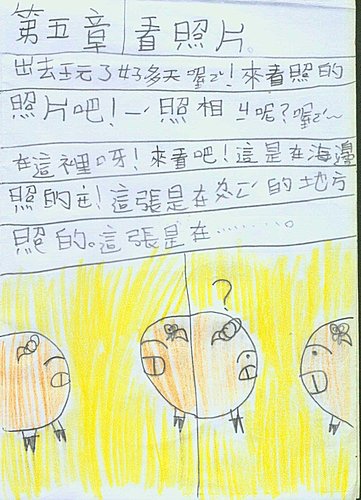 第五章 看照片。
出去玩了好多天喔ㄛˋ!來看照的
照片吧!ㄧˊ照相ㄐㄧ呢?喔ㄛˋ~
在這裡呀!來看吧!這是在海邊
照的ㄓㄜ!這張是在ㄌㄜˋ的地方
照的。這張是在………。
?